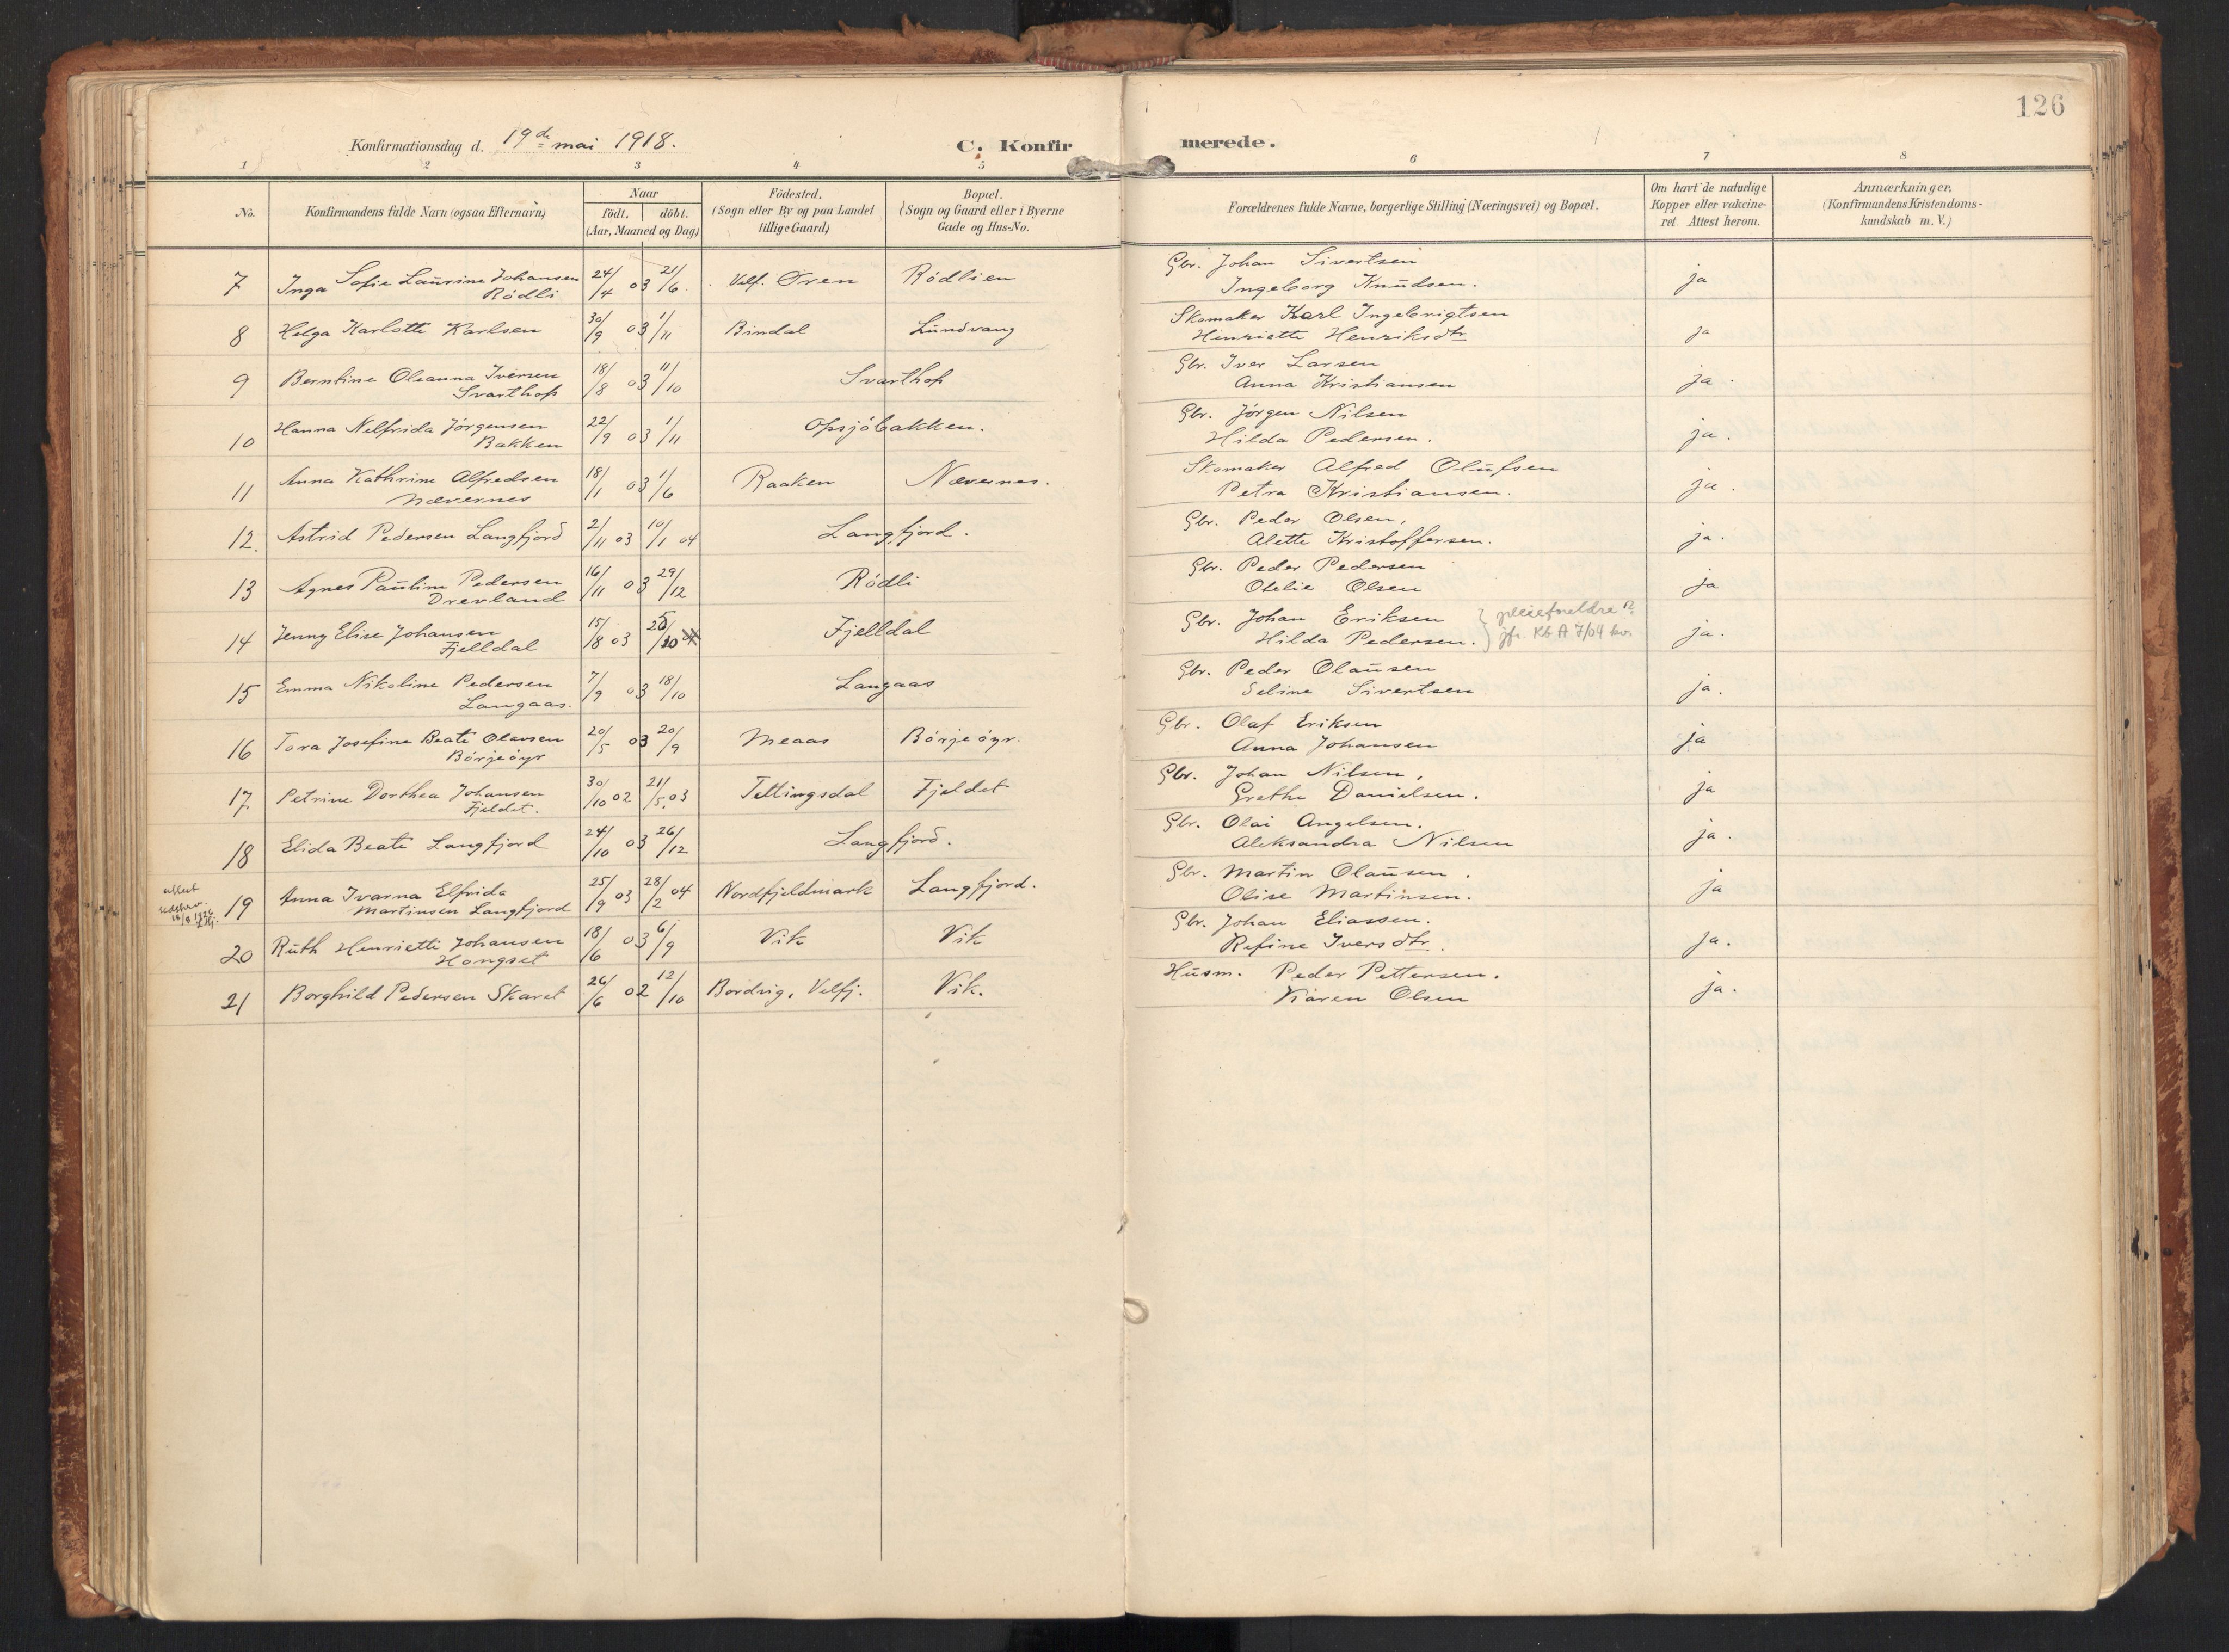 126
Konfirmationsdag d. 19de mai 1918. C. Konfir merede.
1 2 3 4 5 6 7 8
No. Konfirmandens fulde Navn (ogsaa Efternavn) Naar født, døbt. (Aar, Maaned og Dag) Födested. (Sogn eller By og paa Landet tillige Gaard) Bopæl. (Sogn og Gaard eller i Byerne Gade og Hus-No. Forældrenes fulde Navne, borgerlige Stilling (Næringsvei) og Bopæl. Om havt de naturlige Kopper eller vakcineret. Attest herom. Anmærkninger, (Konfirmandens Kristendomskundskab m. V.)
7 Inga Sofie Laurine Johansen 24/4 03 21/6. Velf. Oren Rödlien Gbr. Johan Sivertsen ja
Rödli Ingeborg Knudsen.
8 Helga Karlotte Karlsen 30/9 03 1/11 Bindal Lundvang Skomaker Karl Ingebrigtsen ja
Henriette Henriksdtr
9 Berntine Oleanna Iversen 18/8 03 11/10 Svarthop Gbr. Iver Larsen ja.
Svarthop Anna Kristiansen
10 Hanna Nelfrida Jörgensen 22/9 03 1/11 Opsjöbakken. Gbr. Jörgen Nilsen ja.
Bakken Hilda Pedersen.
11 Anna Kathrine Alfredsen 18/1 03 1/6 Raaken Nævernes. Skomaker Alfred Olufsen ja.
Nævernes Petra Kristiansen.
12. Astrid Pedersen Langfjord 2/11 03 10/1 04 Langfjord. Gbr. Peder Olsen, ja.
Alette Kristoffersen.
13 Agnes Pauline Pedersen 16/11 03 29/12 Rödli Gbr. Peder Pedersen ja
Drevland Otelie Olsen
14 Jenny Elise Johansen 15/8 03 25/10 Fjelldal Gbr. Johan Eriksen pleieforeldre? ja.
Fjelldal Hilda Pedersen. jfr. Kb A 7/04 kv.
15 Emma Nikoline Pedersen 7/9 03 18/10 Langaas Gbr. Peder Olausen ja.
Langaas. Seline Sivertsen
16 Tora Josefine Beate Olausen 20/5 03 20/9 Meaas Börjeöyr. Gbr. Olaf Eriksen ja
Börjeöyr Anna Johansen
17 Petrine Dorthea Johansen 30/10 02 21/5.03 Tettingsdal Fjeldet Gbr. Johan Nilsen, ja
Fjeldet. Grethe Danielsen.
18 Elida Beate Langfjord 24/10 03 26/12 Langfjord. Gbr. Olai Angelsen. ja.
Aleksandra Nilsen
attest 19 Anna Ivarna Elfrida 25/9 03 28/2 04 Nordfjeldmark Langfjord. Gbr. Martin Olausen. ja
18/8 1926 Martinsen Langfjord Olise Martinsen.
20 Ruth Henriette Johansen 18/6 03 6/9 Vik Vik Gbr. Johan Eliassen. ja.
Hongset Refine Iversdtr.
21 Borghild Pedersen Skaret 26/6 02 12/10 Bordvig, Velfj. Vik. Husm. Peder Pettersen. ja.
Karen Olsen